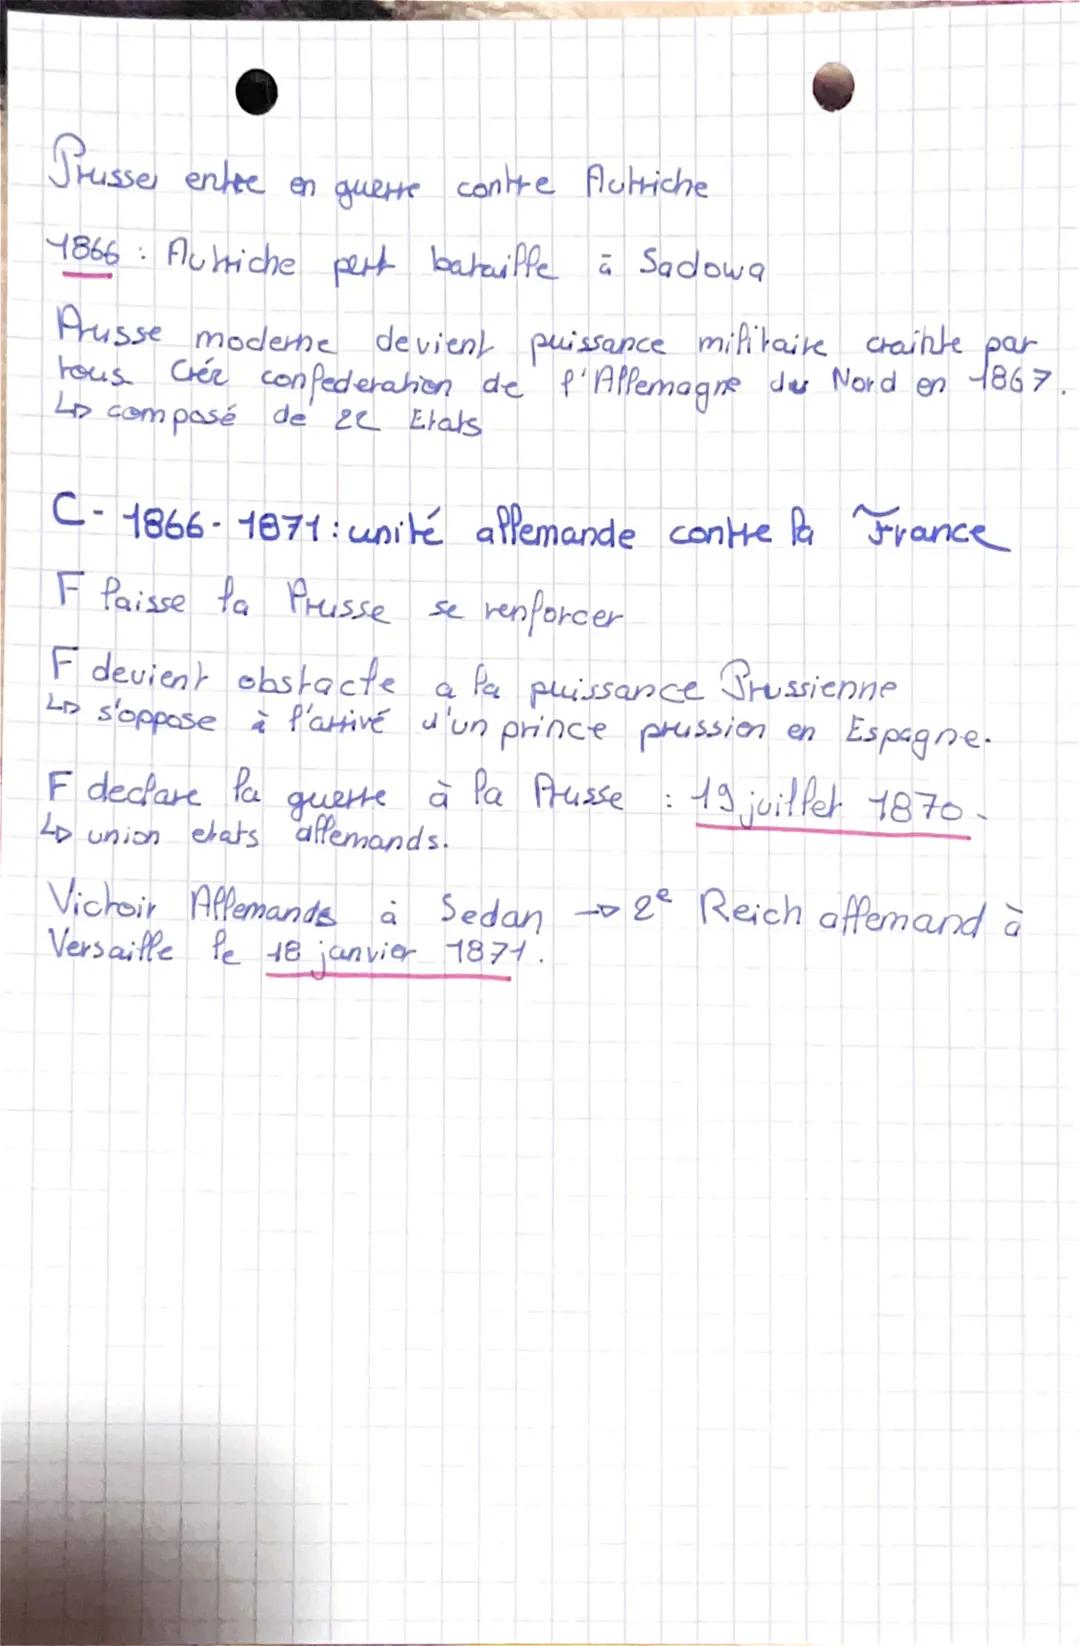 Prusse entre en guerre contre Autriche
1866 : Autriche pert bataille à Sadowa
Prusse moderne devient puissance militaire crainte par
tous Créé confederation de l'Allemagne du Nord en 1867.
↳ composé de 22 Etats
C - 1866 - 1871 : unité allemande contre la France
F laisse la Prusse se renforcer
F devient obstacle a la puissance Prussienne
↳ s'oppose à l'arrivé d'un prince prussien en Espagne.
F declare la guerre à la Prusse : 19 juillet 1870.
↳ union etats allemands.
Victoir Allemands à Sedan → 2e Reich allemand à
Versaille le 18 janvier 1871.